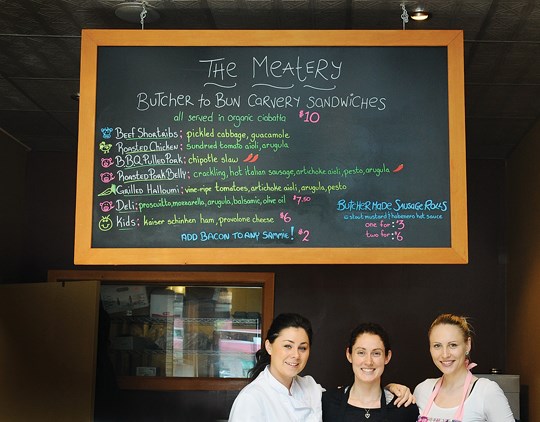 THE MEATERY
BUTCHER TO BUN CARVERY SANDWICHES
all served in organic ciabatta $10
Beef Shortribs: pickled cabbage, guacamole
Roasted Chicken: sundried tomato aioli, arugula
BBQ Pulled Pork: chipotle slaw
Roasted Pork Belly: crackling, hot italian sausage, artichoke aioli, pesto, arugula
Grilled Halloumi: vine-ripe tomatoes, artichoke aioli, arugula, pesto
Deli: proscuitto, mozzarella, arugula, balsamic, olive oil $7.50
Kids: kaiser schinken ham, provolone cheese $6
ADD BACON TO ANY SAMMIE! $2
BUTCHER MADE SAUSAGE ROLLS
stout mustard / habanero hot sauce
one for: $3
two for: $6